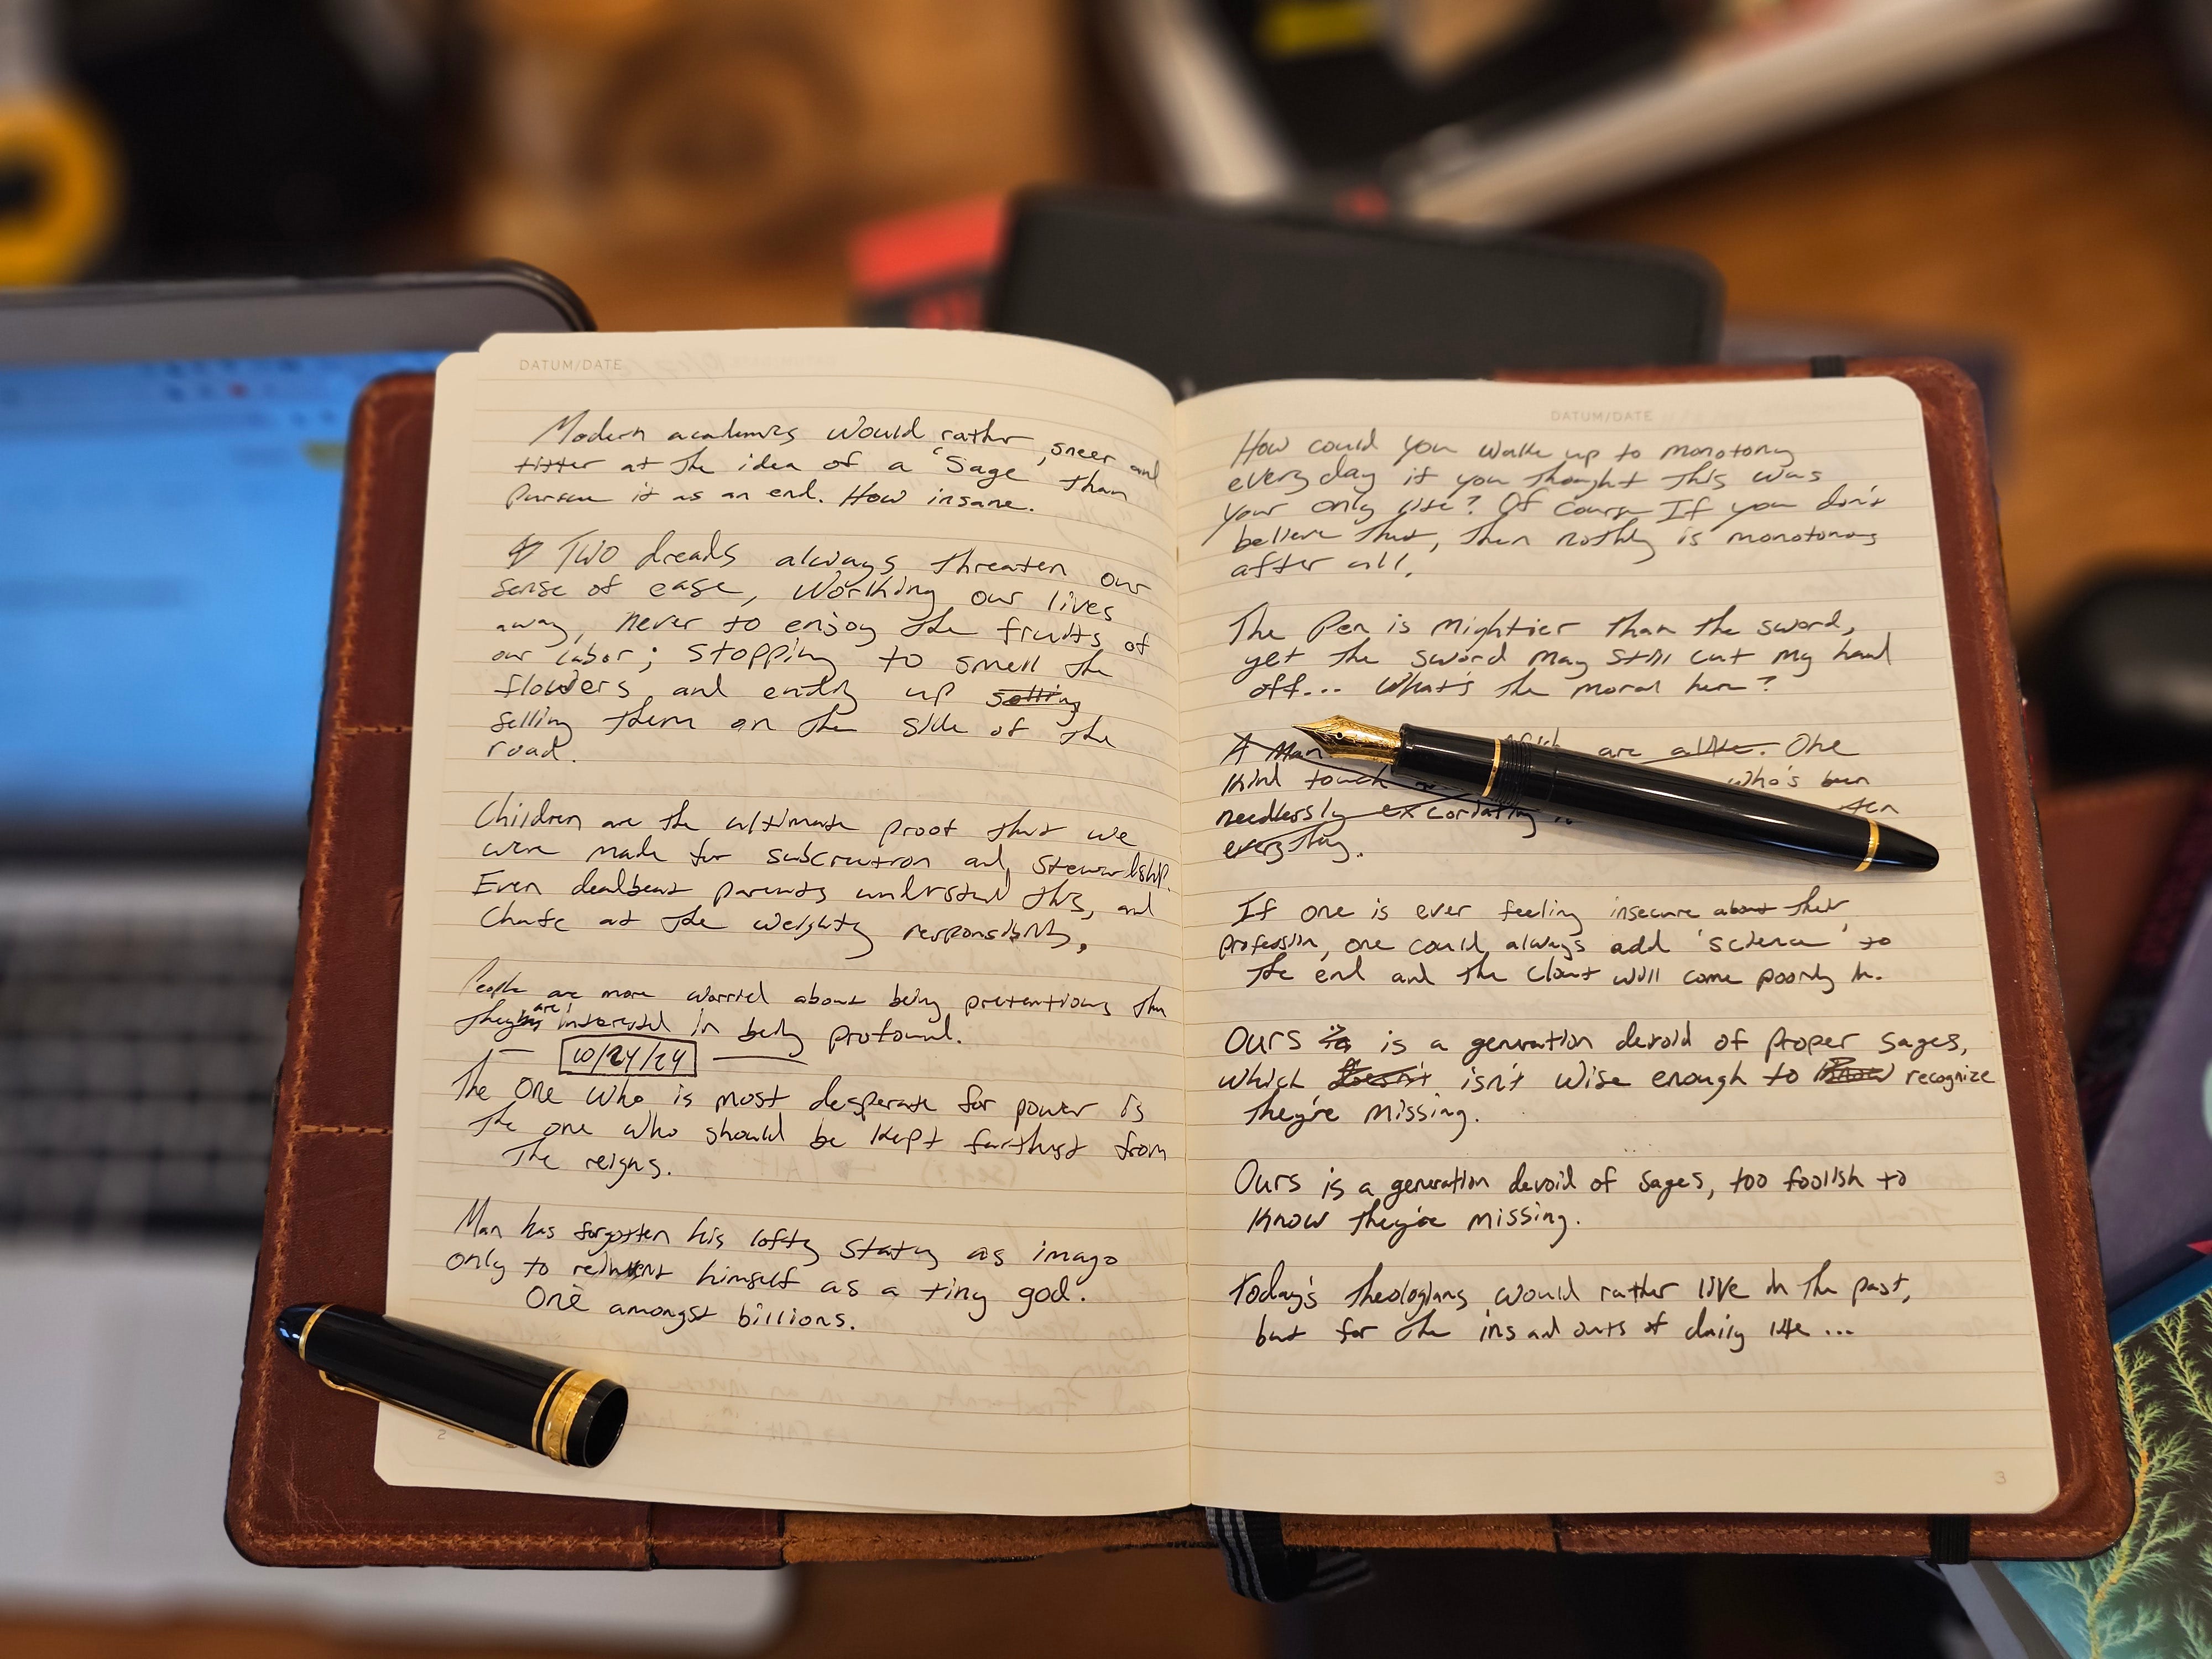 DATUM/DATE
Modern academics would rather sneer and
titter at the idea of a 'Sage' than
pursue it as an end. How insane.
Two dreads always threaten our
sense of ease, working our lives
away, never to enjoy the fruits of
our labor; stopping to smell the
flowers and ending up selling
selling them on the side of the
road.
Children are the ultimate proof that we
were made for subcreation and stewardship.
Even deadbeat parents understand this, and
chafe at the weighty responsibility.
People are more worried about being pretentious than
they are interested in being profound.
10/24/24
The one who is most desperate for power is
the one who should be kept farthest from
the reigns.
Man has forgotten his lofty status as imago
only to reinvent himself as a tiny god.
One amongst billions.
2
DATUM/DATE
How could you wake up to monotony
every day if you thought this was
your only life? Of course If you don't
believe that, then nothing is monotonous
after all.
The Pen is Mightier than the sword,
yet the sword may still cut my hand
off... What's the moral here?
A Man are alike. One
kind touch who's been
needlessly excoriating
everything.
If one is ever feeling insecure about their
profession, one could always add 'science' to
the end and the clout will come pouring in.
Ours is is a generation devoid of proper sages,
which doesn't isn't wise enough to know recognize
they're missing.
Ours is a generation devoid of sages, too foolish to
know they're missing.
Today's theologians would rather live in the past,
but for the ins and outs of daily life ...
3